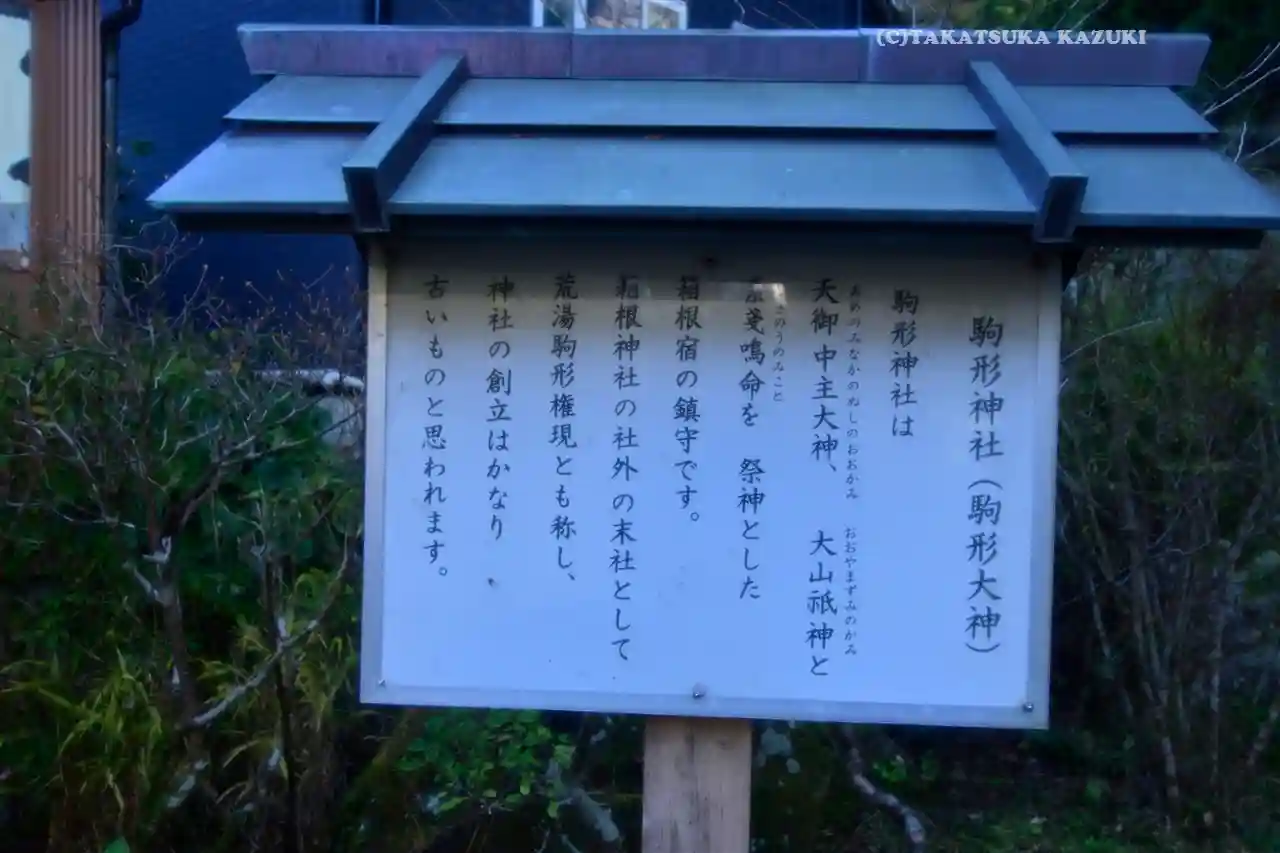 (C)TAKATSUKA KAZUKI
駒形神社(駒形大神)
駒形神社は
あめのみなかのぬしのおおかみ おおやまずみのかみ
天御中主大神、 大山祇神と
さのうのみこと
素戔鳴命を 祭神とした
箱根宿の鎮守です。
箱根神社の社外の末社として
荒湯駒形権現とも称し、
神社の創立はかなり
古いものと思われます。